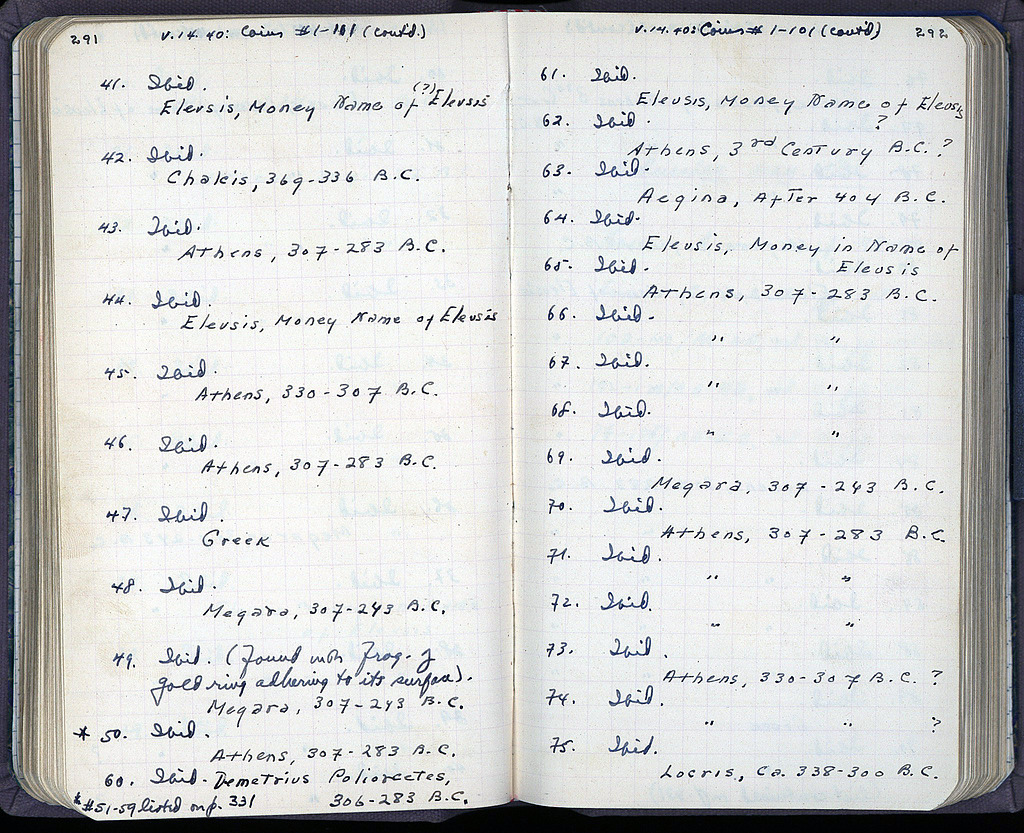 291 V.14.40: Coins #1-101 (cont'd.)
41. Ibid.
Eleusis, Money Name of (?) Eleusis
42. Ibid.
Chalcis, 369-336 B.C.
43. Ibid.
Athens, 307-283 B.C.
44. Ibid.
Eleusis, Money Name of Eleusis
45. Ibid.
Athens, 330-307 B.C.
46. Ibid.
Athens, 307-283 B.C.
47. Ibid.
Greek
48. Ibid.
Megara, 307-243 B.C.
49. Ibid. (Found with frag. of
gold ring adhering to its surface).
Megara, 307-243 B.C.
* 50. Ibid.
Athens, 307-283 B.C.
60. Ibid. Demetrius Poliorcetes,
306-283 B.C.
* #51-59 listed on p. 331
V.14.40: Coins # 1-101 (cont'd) 292
61. Ibid.
Eleusis, Money Name of Eleusis
?
62. Ibid.
Athens, 3rd Century B.C. ?
63. Ibid.
Aegina, After 404 B.C.
64. Ibid.
Eleusis, Money in Name of
Eleusis
65. Ibid.
Athens, 307-283 B.C.
66. Ibid.
" "
67. Ibid.
" "
68. Ibid.
" "
69. Ibid.
Megara, 307-243 B.C.
70. Ibid.
Athens, 307-283 B.C.
71. Ibid.
" "
72. Ibid.
" "
73. Ibid.
Athens, 330-307 B.C. ?
74. Ibid.
" " ?
75. Ibid.
Locris, Ca. 338-300 B.C.